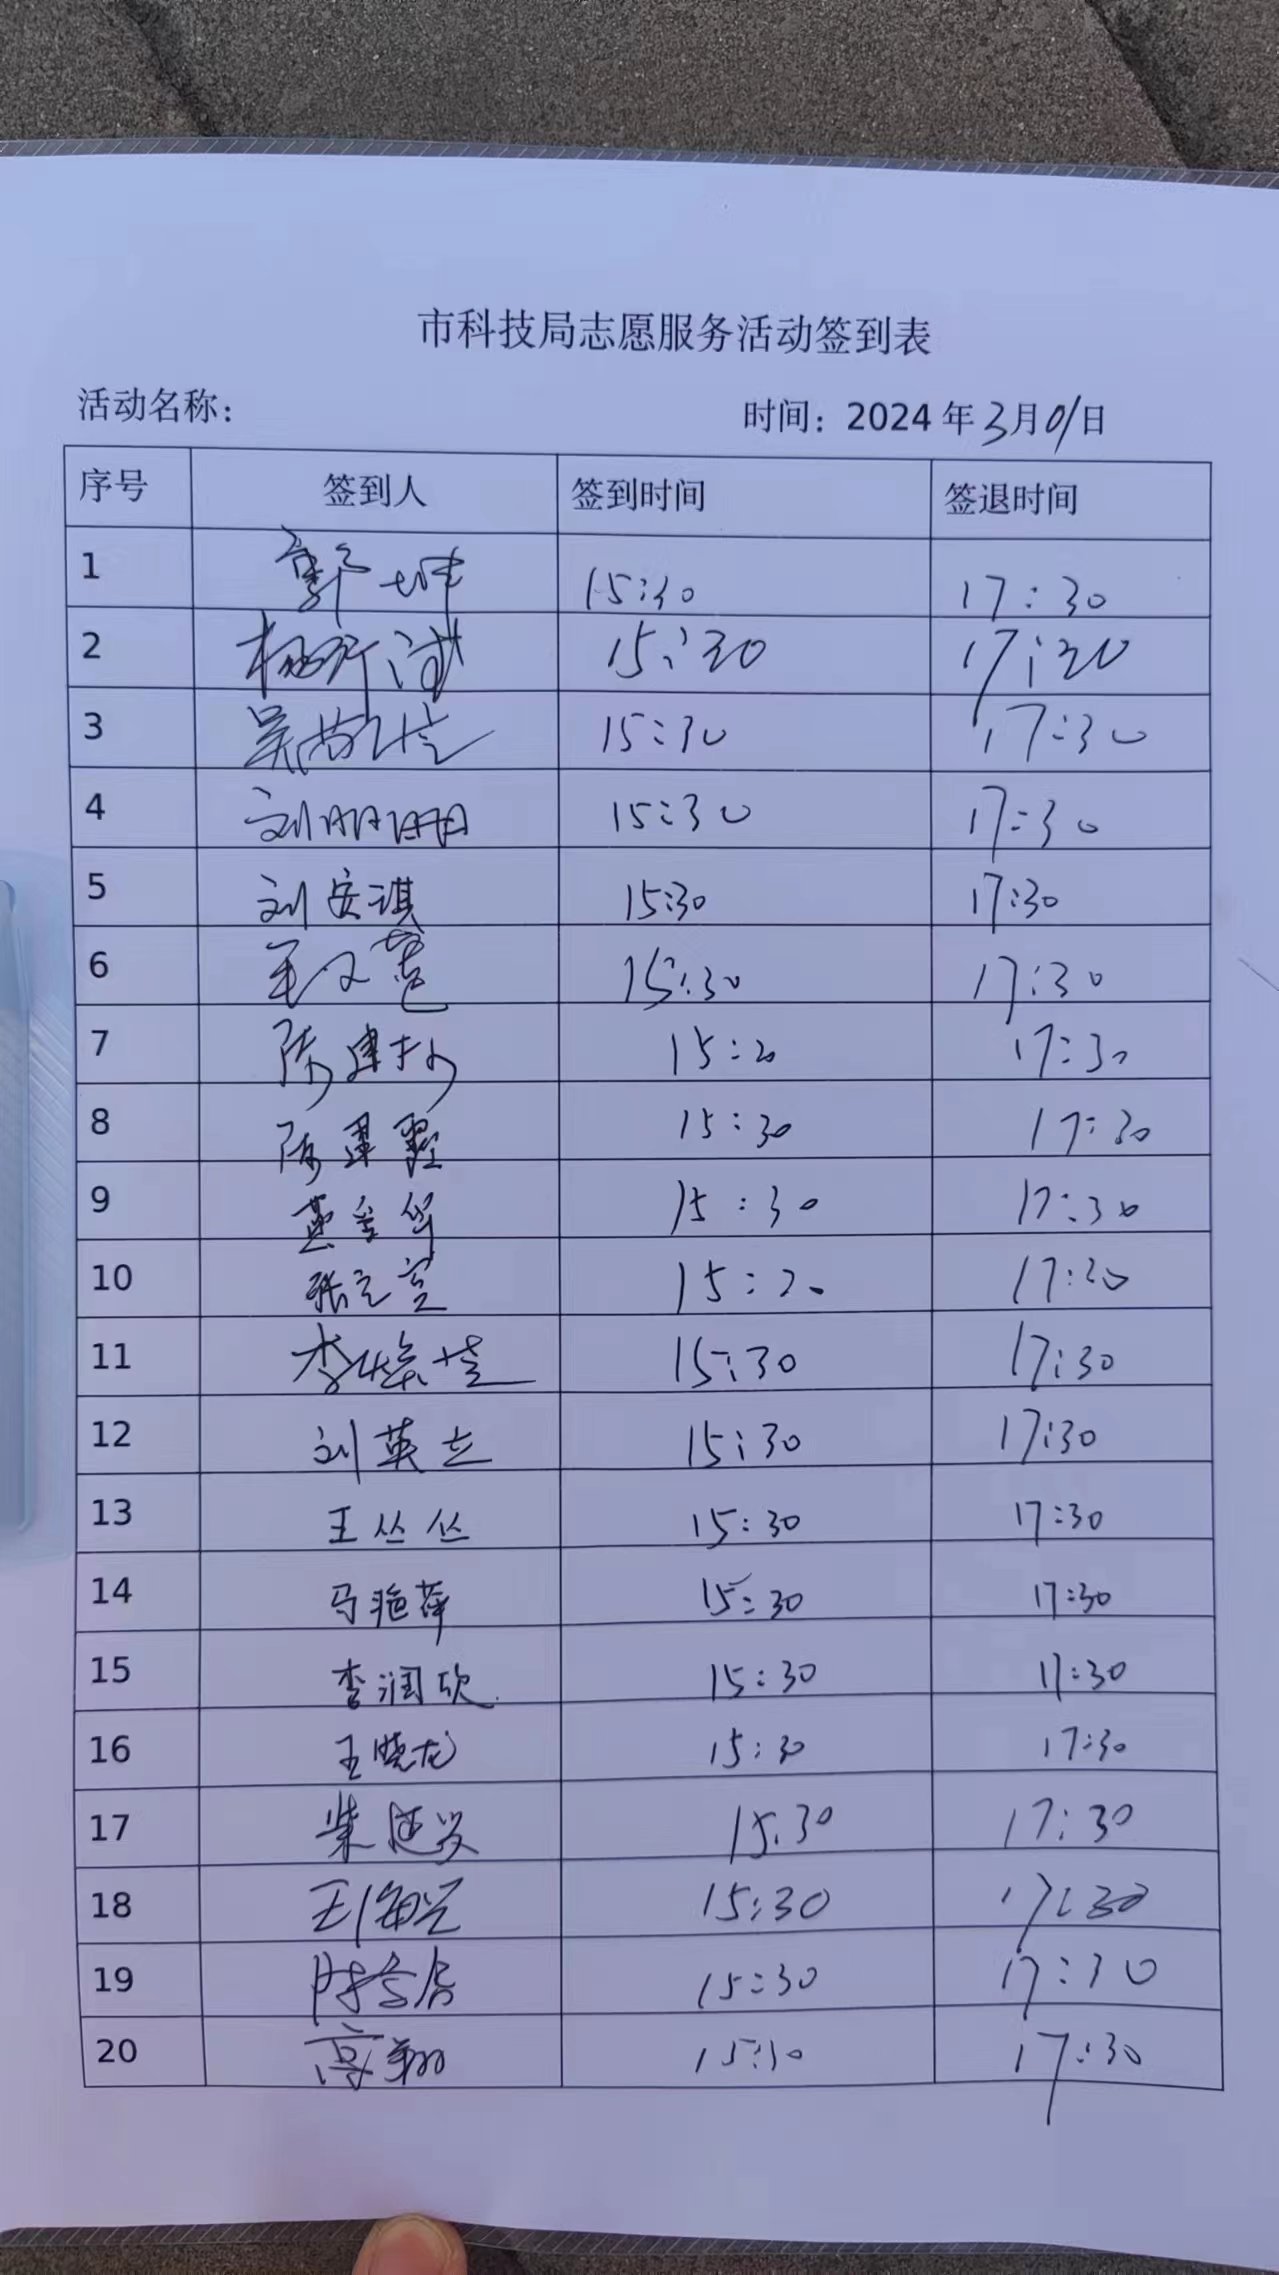 市科技局志愿服务活动签到表
活动名称： 时间：2024年3月01日
序号 签到人 签到时间 签退时间
1 郭坤 15:30 17:30
2 15:30 17:30
3 吴 15:30 17:30
4 刘明明 15:30 17:30
5 刘安淇 15:30 17:30
6 15:30 17:30
7 陈建 15:30 17:30
8 陈 15:30 17:30
9 燕 15:30 17:30
10 张 15:30 17:30
11 李 15:30 17:30
12 刘英杰 15:30 17:30
13 王丛丛 15:30 17:30
14 马艳萍 15:30 17:30
15 李润欣 15:30 17:30
16 王晓龙 15:30 17:30
17 柴延安 15.30 17:30
18 王海 15:30 17:30
19 15:30 17:30
20 高翔 15:30 17:30